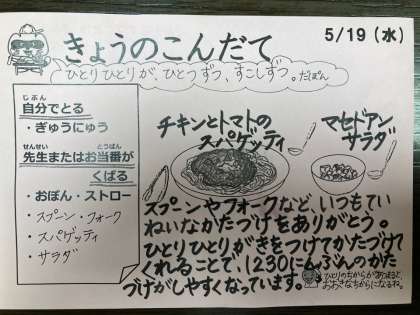 きょうのこんだて
5/19（水）
ひとりひとりが、ひとつずつ、すこしずつ。だぽん
じぶん
自分でとる
・ぎゅうにゅう
せんせい とうばん
先生またはお当番が
くばる
・おぼん・ストロー
・スプーン・フォーク
・スパゲッティ
・サラダ
チキンとトマトの
スパゲッティ
マセドアン
サラダ
スプーンやフォークなど、いつもてい
ねいなかたづけをありがとう。
ひとりひとりがきをつけてかたづけて
くれることで、1230にんぶんのかた
づけがしやすくなっています。
ひとりのちからがあつまると、
おおきなちからになるね。